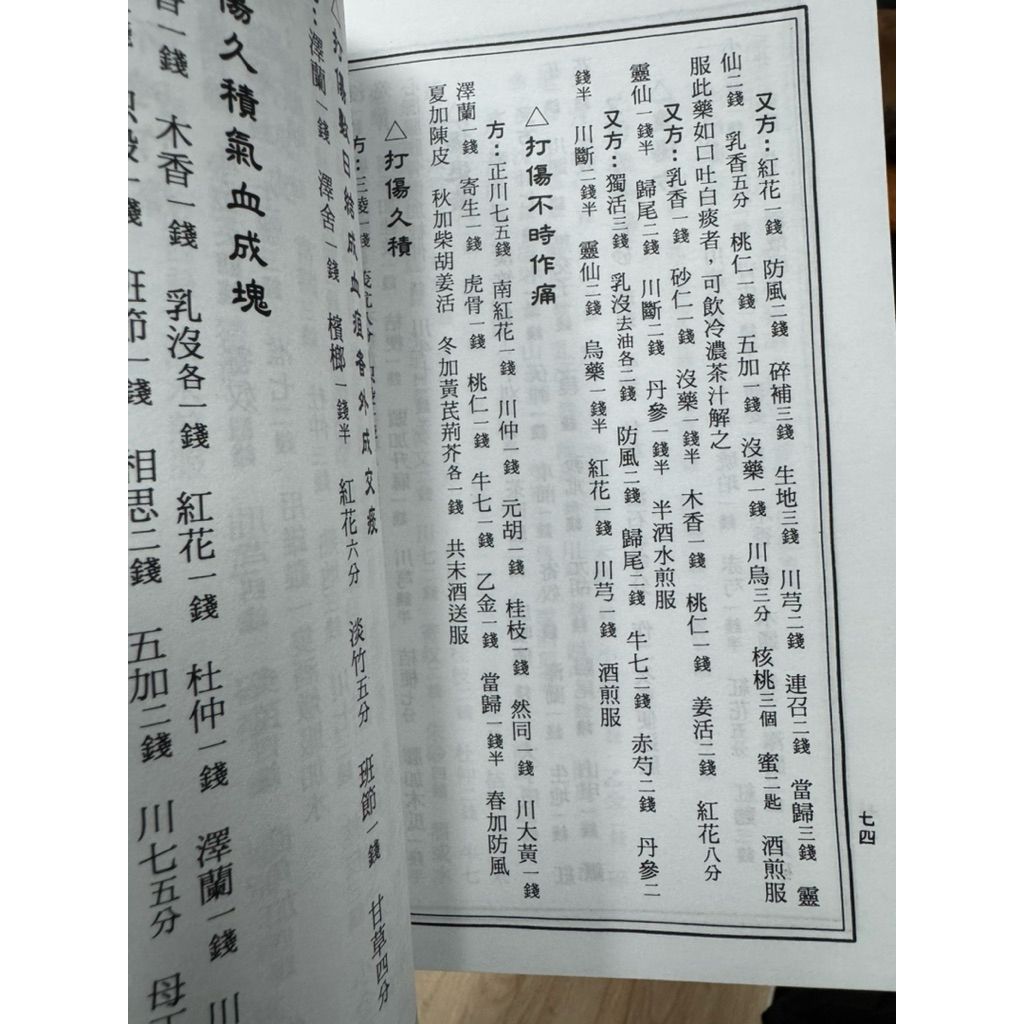 又方：紅花一錢 防風二錢 碎補三錢 生地三錢 川芎二錢 連召二錢 當歸三錢 靈
仙二錢 乳香五分 桃仁一錢 五加一錢 沒藥一錢 川烏三分 核桃三個 蜜二匙 酒煎服
服此藥如口吐白痰者，可飲冷濃茶汁解之
又方：乳香一錢 砂仁一錢 沒藥一錢半 木香一錢 桃仁一錢 姜活二錢 紅花八分
靈仙一錢半 歸尾二錢 川斷二錢 丹參一錢半 半酒水煎服
又方：獨活三錢 乳沒去油各二錢 防風二錢 歸尾二錢 牛七二錢 赤芍二錢 丹參二
錢半 川斷二錢半 靈仙二錢 烏藥一錢半 紅花一錢 川芎一錢 酒煎服
△打傷不時作痛
方：正川七五錢 南紅花一錢 川仲一錢 元胡一錢 桂枝一錢 然同一錢 川大黃一錢
澤蘭一錢 寄生一錢 虎骨一錢 桃仁一錢 牛七一錢 乙金一錢 當歸一錢半 春加防風
夏加陳皮 秋加柴胡姜活 冬加黃芪荊芥各一錢 共末酒送服
△打傷久積
方：三凌一錢
七四
日結成血
澤蘭一錢 澤舍一錢 檳榔一錢半 紅花六分 淡竹五分 班節一錢 甘草四分
傷久積氣血成塊
一錢 木香一錢 乳沒各一錢 紅花一錢 杜仲一錢 澤蘭一錢 川
一錢 班節一錢 相思二錢 五加二錢 川七五分